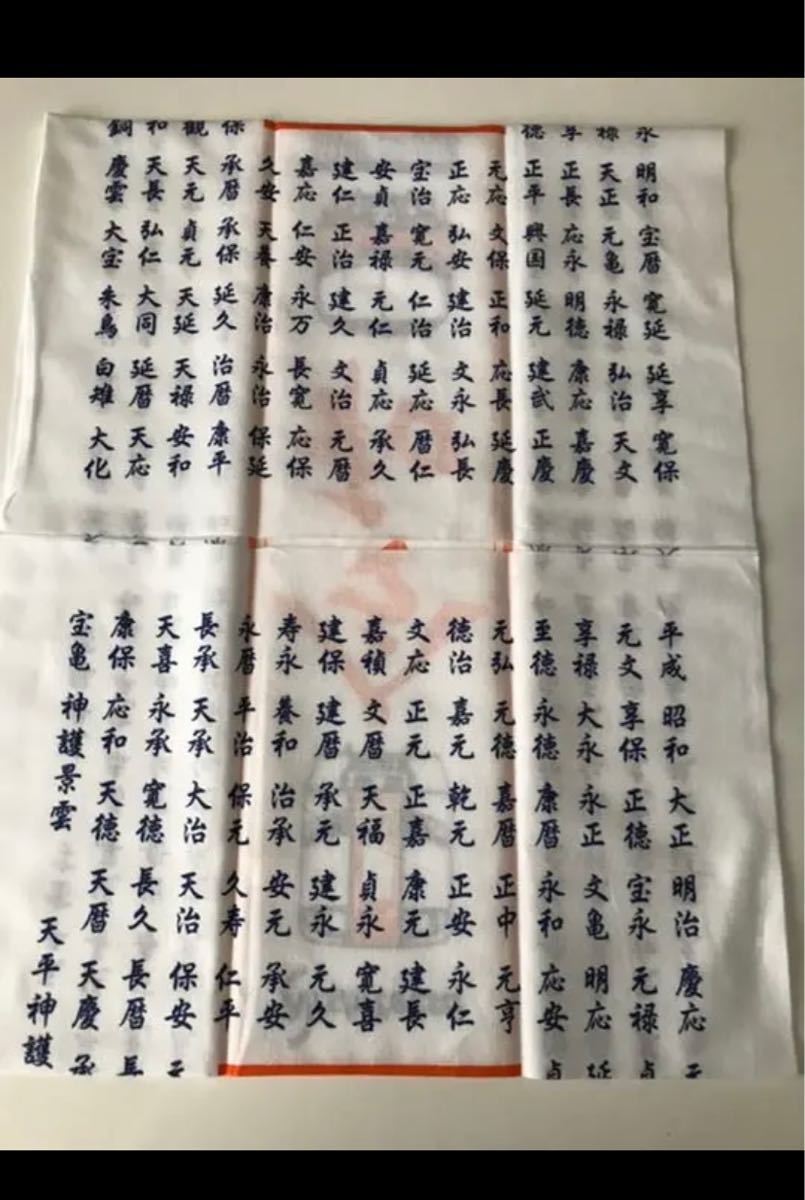 永 明和 宝暦 寛延 延享 寛保
禄 天正 元亀 永禄 弘治 天文
享 正長 応永 明徳 康応 嘉慶
徳 正平 興国 延元 建武 正慶
元応 文保 正和 応長 延慶
正応 弘安 建治 文永 弘長
宝治 寛元 仁治 延応 暦仁
安貞 嘉禄 元仁 貞応 承久
建仁 正治 建久 文治 元暦
嘉応 仁安 永万 長寛 応保
久安 天養 康治 永治 保延
保 承暦 承保 延久 治暦 康平
観 天元 貞元 天延 天禄 安和
和 天長 弘仁 大同 延暦 天応
銅 慶雲 大宝 朱鳥 白雉 大化
平成 昭和 大正 明治 慶応 元
元文 享保 正徳 宝永 元禄 貞
享禄 大永 永正 文亀 明応 延
至徳 永徳 康暦 永和 応安 貞
元弘 元徳 嘉暦 正中 元亨
徳治 嘉元 乾元 正安 永仁
文応 正元 正嘉 康元 建長
嘉禎 文暦 天福 貞永 寛喜
建保 建暦 承元 建永 元久
寿永 養和 治承 安元 承安
永暦 平治 保元 久寿 仁平
長承 天承 大治 天治 保安 元
天喜 永承 寛徳 長久 長暦 長
康保 応和 天徳 天暦 天慶 承
宝亀 神護景雲 天平神護